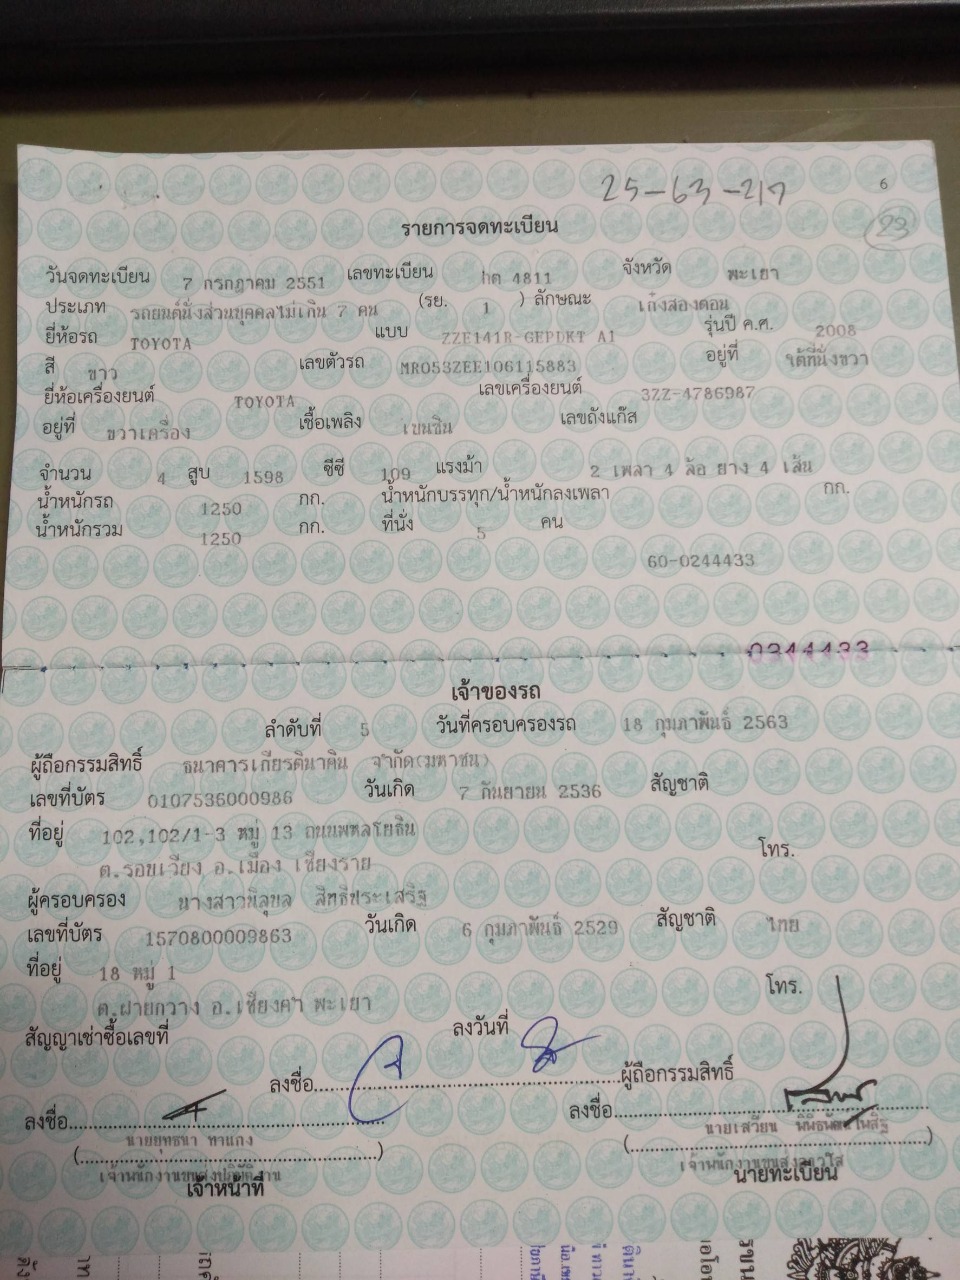 25-63-217
6
23
รายการจดทะเบียน
วันจดทะเบียน 7 กรกฎาคม 2551 เลขทะเบียน กต 4811 จังหวัด พะเยา
ประเภท รถยนต์นั่งส่วนบุคคลไม่เกิน 7 คน (รย. 1 ) ลักษณะ เก๋งสองตอน
ยี่ห้อรถ TOYOTA แบบ ZZE141R-GEPDKT A1 รุ่นปี ค.ศ. 2008
สี ขาว เลขตัวรถ MR053ZEE106115883 อยู่ที่ ใต้ที่นั่งขวา
ยี่ห้อเครื่องยนต์ TOYOTA เลขเครื่องยนต์ 3ZZ-4786987
อยู่ที่ ขวาเครื่อง เชื้อเพลิง เบนซิน เลขถังแก๊ส
จำนวน 4 สูบ 1598 ซีซี 109 แรงม้า 2 เพลา 4 ล้อ ยาง 4 เส้น
น้ำหนักรถ 1250 กก. น้ำหนักบรรทุก/น้ำหนักลงเพลา กก.
น้ำหนักรวม 1250 กก. ที่นั่ง 5 คน
60-0244433
0244433
เจ้าของรถ
ลำดับที่ 5 วันที่ครอบครองรถ 18 กุมภาพันธ์ 2563
ผู้ถือกรรมสิทธิ์ ธนาคารเกียรตินาคิน จำกัด(มหาชน)
เลขที่บัตร 0107536000986 วันเกิด 7 กันยายน 2536 สัญชาติ
ที่อยู่ 102,102/1-3 หมู่ 13 ถนนพหลโยธิน โทร.
ต.รอบเวียง อ.เมือง เชียงราย
ผู้ครอบครอง นางสาวนิลุบล สิทธิประเสริฐ
เลขที่บัตร 1570800009863 วันเกิด 6 กุมภาพันธ์ 2529 สัญชาติ ไทย
ที่อยู่ 18 หมู่ 1 โทร.
ต.ฝายกวาง อ.เชียงคำ พะเยา
สัญญาเช่าซื้อเลขที่ ลงวันที่
ลงชื่อ ผู้ถือกรรมสิทธิ์
ลงชื่อ ลงชื่อ
นายยุทธนา ทาแกง นายเสวียน
เจ้าพนักงานขนส่งปฏิบัติงาน เจ้าพนักงานขนส่งอาวุโส
เจ้าหน้าที่ นายทะเบียน